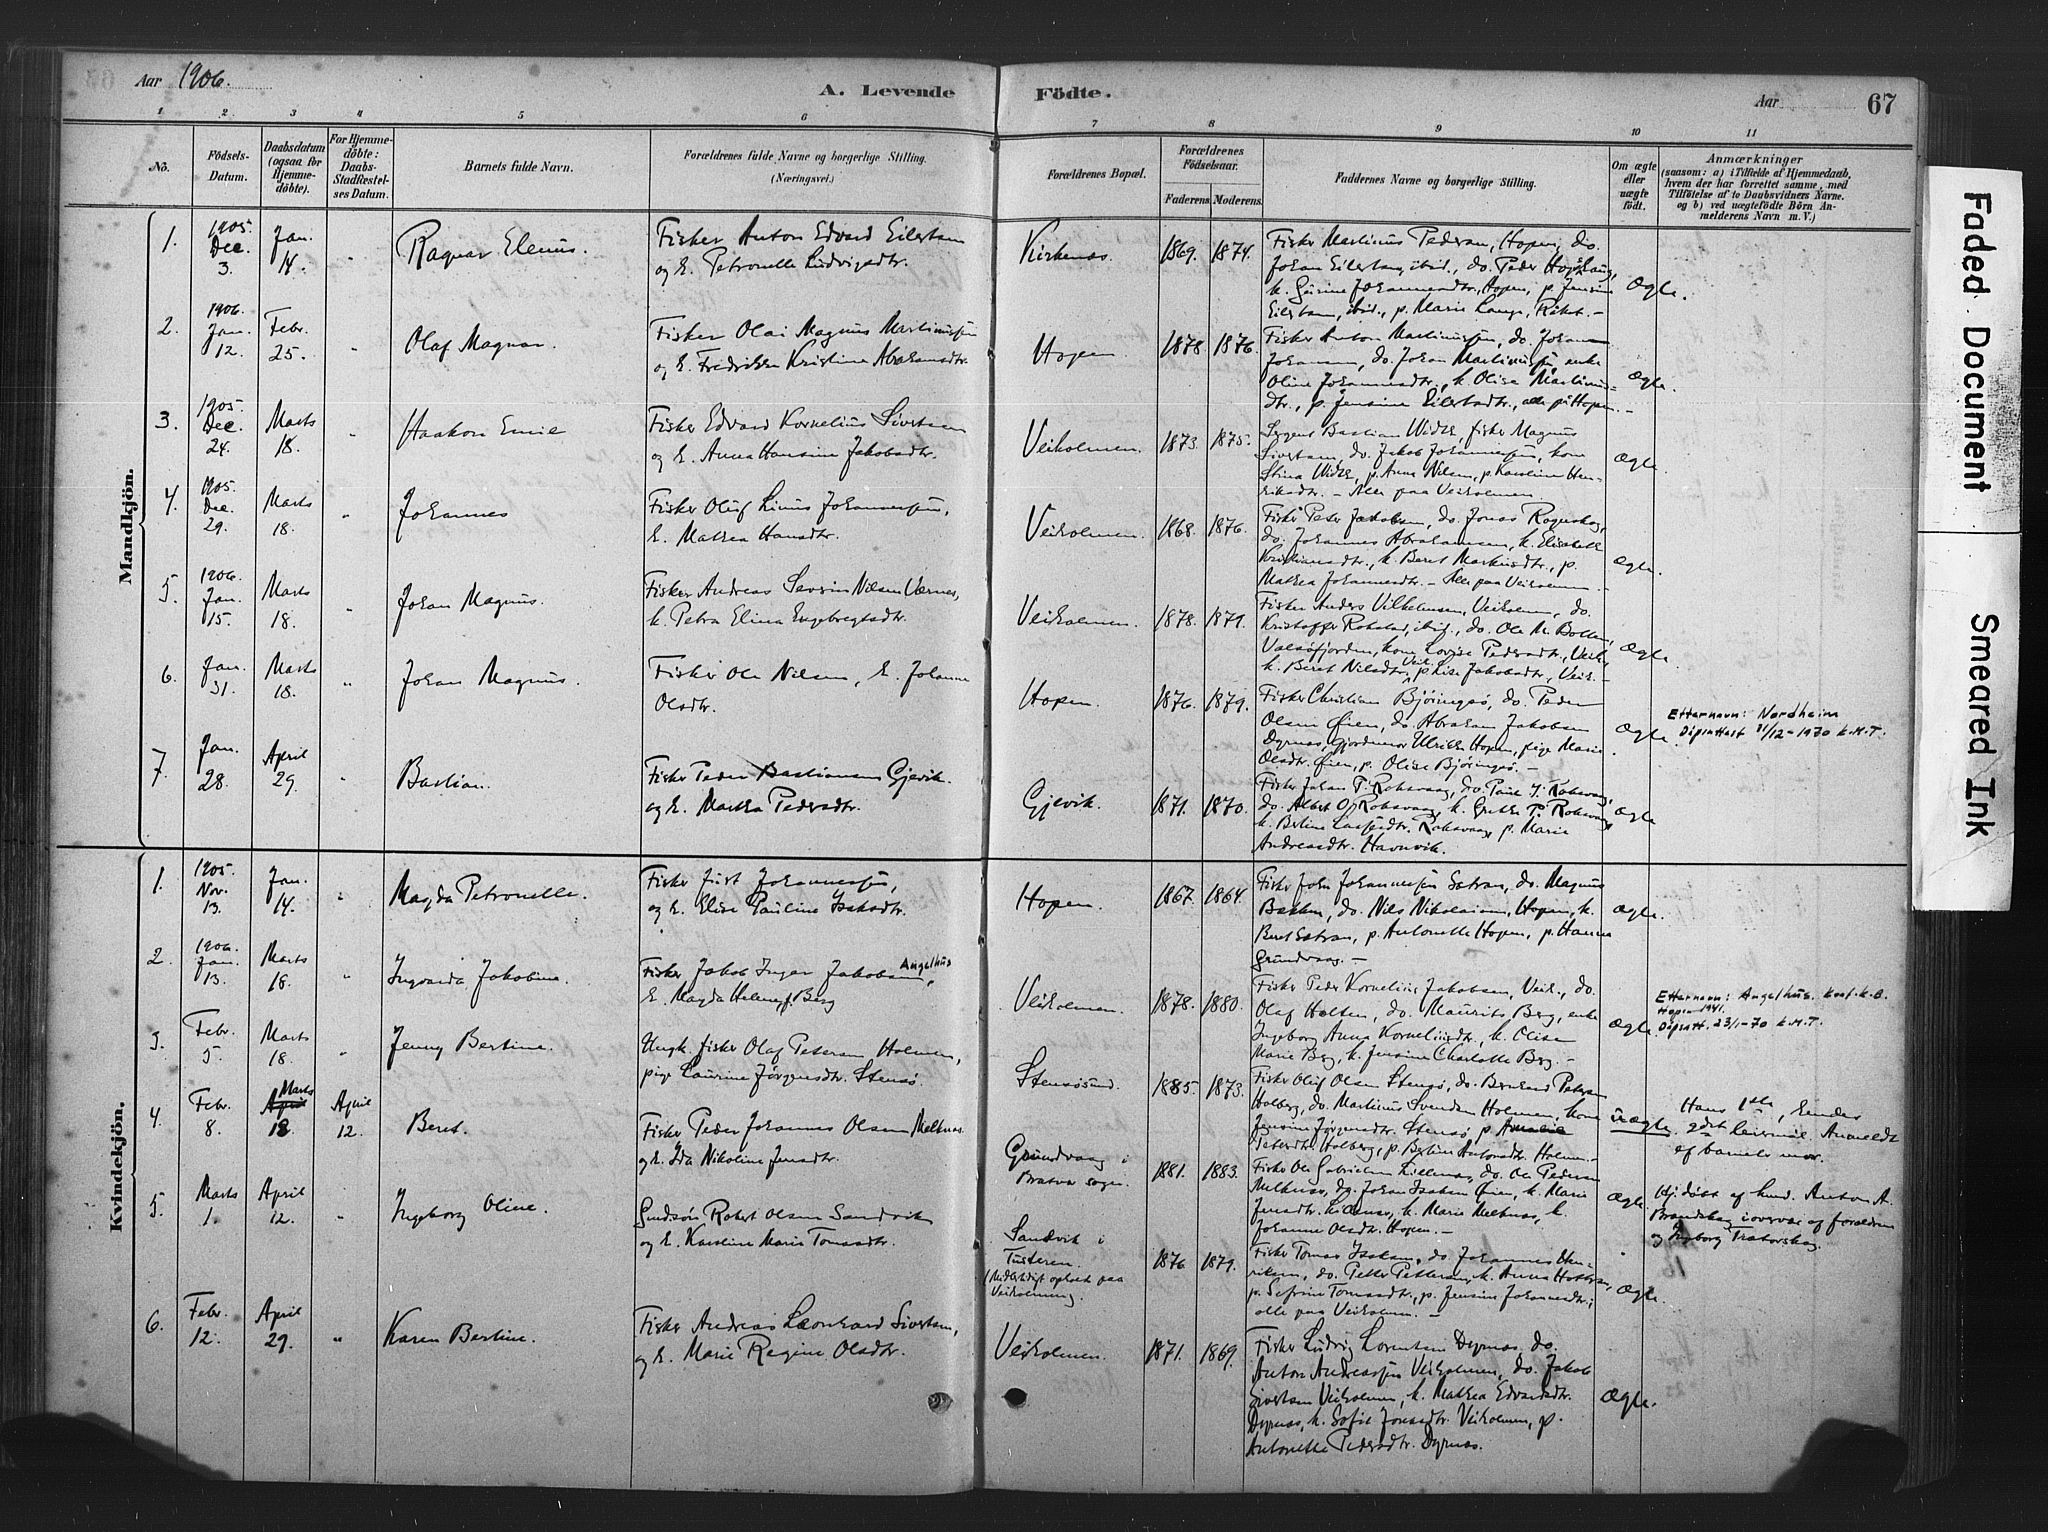 Aar 1906.
A. Levende Födte.
Aar 67
1 2 3 4 5 6 7 8 9 10 11
No.
Födsels-Datum.
Daabsdatum (ogsaa for Hjemmedöbte).
For Hjemmedöbte: Daabs-Stadfæstelses Datum.
Barnets fulde Navn.
Forældrenes fulde Navne og borgerlige Stilling. (Næringsvei.)
Forældrenes Bopæl.
Forældrenes Födselsaar.
Faderens. Moderens.
Faddernes Navne og borgerlige Stilling.
Om ægte eller uægte födt.
Anmærkninger
(saasom: a) i Tilfælde af Hjemmedaab, hvem der har forrettet samme, med Tilföielse af to Daabsvidners Navne. og b) ved uægtefödte Börn Anmelderens Navn m. V.)
Mandkjön.
1. 1905. Dec. 3. Jan. 14. " Ragnar Elenus. Fisker Anton Edvard Eilertsen
og H. Petronelle Ludvigsdtr.
Kirkenæs. 1869. 1874.
Fisker Martinus Pedersen, Hopen, do.
Johan Eilertsen, ibid., do. Peder Hopshaug,
k. Gurine Johannesdtr., Hopen, p. Jensine
Eilertsen, ibid., p. Marie Lange,
Ægte.
2. 1906. Jan. 12. Febr. 25. " Olaf Magnar. Fisker Olai Magnus Martinussen
og H. Fredrikke Kristine Abrahamsdtr.
Hopen 1878 1876.
Fisker Anton Martinussen, do. Johan
Johansen, do. Johan Martinussen, enke
Oline Johannesdtr., k. Olise Martinus-
dtr., p. Jensine Eilertsdtr., alle på Hopen. –
Ægte.
3. 1905. Dec. 24. Marts 18. " Haakon Emil Fisker Edvard Kornelius Sivertsen
og H. Anna Hansine Jakobsdtr.
Veiholmen. 1873. 1875.
Sergent Bastian Width, fisker Magnus
Sivertsen, do. Jakob Johannessen, kone
Stina Width, p. Anna Nilsen, p. Karoline Hen-
riksdtr. – Alle paa Veiholmen.
Ægte.
4. 1905. Dec. 29. Marts 18. " Johannes Fisker Oluf Linus Johannessen,
H. Mathea Hansdtr.
Veiholmen 1868. 1876.
Fisker Peter Jakobsen, do. Jonas
do. Johannes Abrahamsen, k. Elisabeth
Kristiansdtr., k. Beret Markusdtr., p.
Mathea Johannesdtr. – Alle paa Veiholmen –
Ægte.
5. 1906. Jan. 15. Marts 18. " Johan Magnus. Fisker Andreas Severin Nilsen Værnes,
H. Petra Elina Engebregtsdtr.
Veiholmen. 1878. 1879.
Fisker Anders Vilhelmsen, Veiholm., do.
Kristoffer Rokstad, ibid., do. Ole M. Botten,
Valsøfjorden, kone Lovise Pedersdtr., Veih.,
k. Beret Nilsdtr., Veih., p. Lise Jakobsdtr., Veih. –
Ægte.
6. Jan. 31. Marts 18. " Johan Magnus. Fisker Ole Nilsen, H. Johanne
Olsdtr.
Hopen. 1876. 1879.
Fisker Christian Bjøringsø, do. Peder
Olsen Øien, do. Abraham Jakobsen
Dyrnæs, Gjordemor Ulrikke Hopen, pige Marie
Olsdtr. Øien, p. Olise Bjøringsø. –
Ægte.
Etternavn: Nordheim
Dåpsattest 31/12-1970 K.M.T.
7. Jan. 28. April 29. " Bastian. Fisker Peder Bastiansen Gjevik
og H. Martha Pedersdtr.
Gjevik. 1871. 1870.
Fisker Johan P. Roksvaag, do. Paul J. Roksvaag,
do. Albert O. Roksvaag, k. Grethe P. Roksvaag,
k. Bertine Roksvaag, p. Marie
Andreasdtr. Havnvik.
Ægte
Kvindekjön.
1. 1905. Nov. 13. Jan. 14. " Magda Petronelle. Fisker Just Johannessen,
og H. Elise Pauline Isaksdtr.
Hopen. 1867. 1864.
Fisker John Johannessen Sætran, do. Magnus
Bakken, do. Nils Nikolaisen, Hopen, k.
Beret Sætran, p. Antonette Hopen, p. Hanna
Grundvaag. –
Ægte.
2. 1906. Jan. 13. Marts 18. " Ingvarda Jakobine. Fisker Jakob Inger Jakobsen, Angelhus
H. Magda Helene f. Berg
Veiholmen. 1878. 1880.
Fisker Peder Kornelius Jakobsen, Veih., do.
Olaf Holten, do. Maurits Berg, enke
Ingeborg Anna Korneliusdtr., k. Olise
Marie Berg, k. Jensine Charlotte Berg. –
Ægte
Etternavn: Angelhus. konf.k.b.
Hopen 1941.
Dåpsatt. 23/1-70 K.M.T.
3. Febr. 5. Marts 18. " Jenny Bertine. Ungk. fisker Olaf Petersen Holmen,
pige Laurine Jørgensdtr. Stensø.
Stensøsund. 1885. 1873.
Fisker Oluf Olsen Stensø, do. Bernhard Petersen
Holberg, do. Martinus Svendsen Holmen, kone
Jensine Jørgensdtr. Stensø, p. Amalie
Petersdtr. Holberg, p. Bertine Antonsdtr. Holmen. –
uægte.
Hans 1ste, hendes
2det leiermål. Anmeldt
af barnets mor.
4. Febr. 8. Marts April 18. April 12. Beret. Fisker Peder Johannes Olsen Melknæs
og H. Ida Nikoline Jensdtr.
Grundvaag i
Bratvær sogn. 1881. 1883.
Fisker Ole Gabrielsen Lillenæs, do. Ole Pedersen
Melknæs, do. Johan Isaksen Øien, k. Marie
Jensdtr. Lillenæs, k. Marie Melknæs, k.
Johanne Olsdtr. Hopen. –
Ægte.
Hj. døbt af hmd. Anton A.
Brandskag i overvær af forældrene
og Ingborg
5. Marts 1. April 12. " Ingeborg Oline. Gmdsøn Robert Olsen Sandvik
og H. Karoline Marie Tomasdtr.
Sandvik i
Tusteren.
(Midlertidigt ophold paa
Veiholmen). 1876 1879.
Fisker Tomas Isaksen, do. Johannes Hen-
riksen, do. Petter Pettersen, k. Anna Holten,
p. Sofrine Tomasdtr., p. Jensine Johannesdtr.;
alle paa Veiholmen. –
Ægte.
6. Febr. 12. April 29. " Karen Bertine. Fisker Andreas Leonhard Sivertsen,
og H. Marie Regine Olsdtr.
Veiholmen. 1871. 1869.
Fisker Ludvig Lorentsen Dyrnæs, do.
Anton Andreassen Veiholmen, do. Jakob
Sivertsen Veiholmen, k. Mathea Edvardsdtr.
Dyrnæs, k. Sofie Jonasdtr. Veiholmen, p.
Antonette Pedersdtr. Dyrnæs.
Ægte.
Faded Document
Smeared Ink